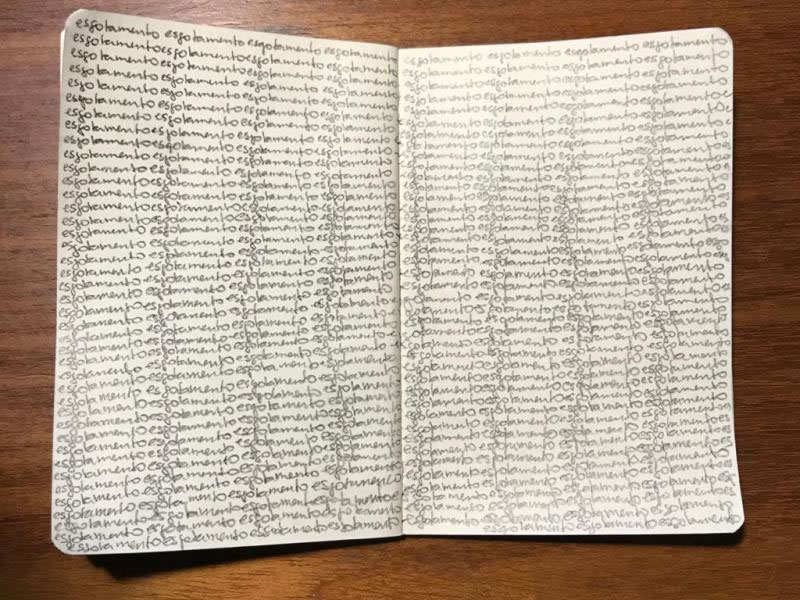 esgotamento esgotamento esgotamento esgotamento
esgotamento esgotamento esgotamento esgotamento
esgotamento esgotamento esgotamento esgotamento
esgotamento esgotamento esgotamento esgotamento
esgotamento esgotamento esgotamento esgotamento
esgotamento esgotamento esgotamento esgotamento
esgotamento esgotamento esgotamento esgotamento
esgotamento esgotamento esgotamento esgotamento
esgotamento esgotamento esgotamento esgotamento
esgotamento esgotamento esgotamento esgotamento
esgotamento esgotamento esgotamento esgotamento
esgotamento esgotamento esgotamento esgotamento
esgotamento esgotamento esgotamento esgotamento
esgotamento esgotamento esgotamento esgotamento
esgotamento esgotamento esgotamento esgotamento
esgotamento esgotamento esgotamento esgotamento
esgotamento esgotamento esgotamento esgotamento
esgotamento esgotamento esgotamento esgotamento
esgotamento esgotamento esgotamento esgotamento
esgotamento esgotamento esgotamento esgotamento
esgotamento esgotamento esgotamento esgotamento
esgotamento esgotamento esgotamento esgotamento
esgotamento esgotamento esgotamento esgotamento
esgotamento esgotamento esgotamento esgotamento
esgotamento esgotamento esgotamento esgotamento
esgotamento esgotamento esgotamento esgotamento
esgotamento esgotamento esgotamento esgotamento
esgotamento esgotamento esgotamento esgotamento
esgotamento esgotamento esgotamento esgotamento
esgotamento esgotamento esgotamento esgotamento
esgotamento esgotamento esgotamento esgotamento
esgotamento esgotamento esgotamento esgotamento
esgotamento esgotamento esgotamento esgotamento
esgotamento esgotamento esgotamento esgotamento
esgotamento esgotamento esgotamento esgotamento
esgotamento esgotamento esgotamento esgotamento
esgotamento esgotamento esgotamento esgotamento
esgotamento esgotamento esgotamento esgotamento
esgotamento esgotamento esgotamento esgotamento
esgotamento esgotamento esgotamento esgotamento
esgotamento esgotamento esgotamento esgotamento
esgotamento esgotamento esgotamento esgotamento
esgotamento esgotamento esgotamento esgotamento
esgotamento esgotamento esgotamento esgotamento
esgotamento esgotamento esgotamento esgotamento
esgotamento esgotamento esgotamento esgotamento
esgotamento esgotamento esgotamento esgotamento
esgotamento esgotamento esgotamento esgotamento
esgotamento esgotamento esgotamento esgotamento
esgotamento esgotamento esgotamento esgotamento
esgotamento esgotamento esgotamento esgotamento
esgotamento esgotamento esgotamento esgotamento
esgotamento esgotamento esgotamento esgotamento
esgotamento esgotamento esgotamento esgotamento
esgotamento esgotamento esgotamento esgotamento
esgotamento esgotamento esgotamento esgotamento
esgotamento esgotamento esgotamento esgotamento
esgotamento esgotamento esgotamento esgotamento
esgotamento esgotamento esgotamento esgotamento
esgotamento esgotamento esgotamento esgotamento
esgotamento esgotamento esgotamento esgotamento
esgotamento esgotamento esgotamento esgotamento
esgotamento esgotamento esgotamento esgotamento
esgotamento esgotamento esgotamento esgotamento
esgotamento esgotamento esgotamento esgotamento
esgotamento esgotamento esgotamento esgotamento
esgotamento esgotamento esgotamento esgotamento
esgotamento esgotamento esgotamento esgotamento
esgotamento esgotamento esgotamento esgotamento
esgotamento esgotamento esgotamento esgotamento
esgotamento esgotamento esgotamento esgotamento
esgotamento esgotamento esgotamento